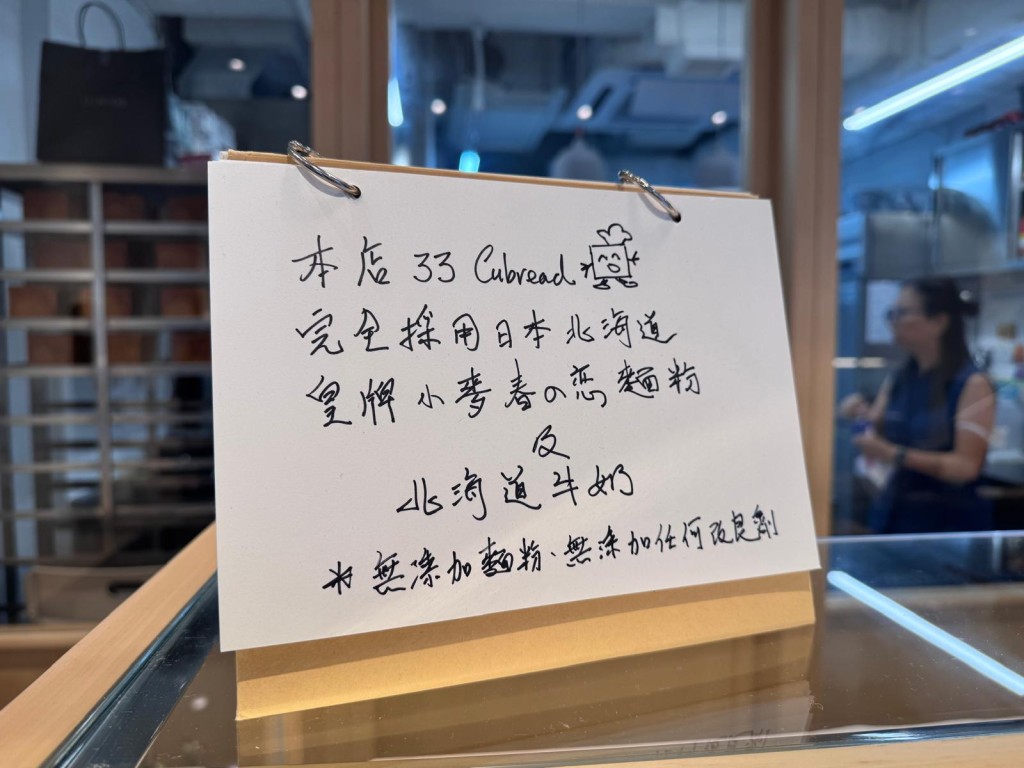 本店 33 Cubread
完全採用日本北海道
皇牌小麥春の恋麵粉
及
北海道牛奶
*無添加麵粉、無添加任何改良劑